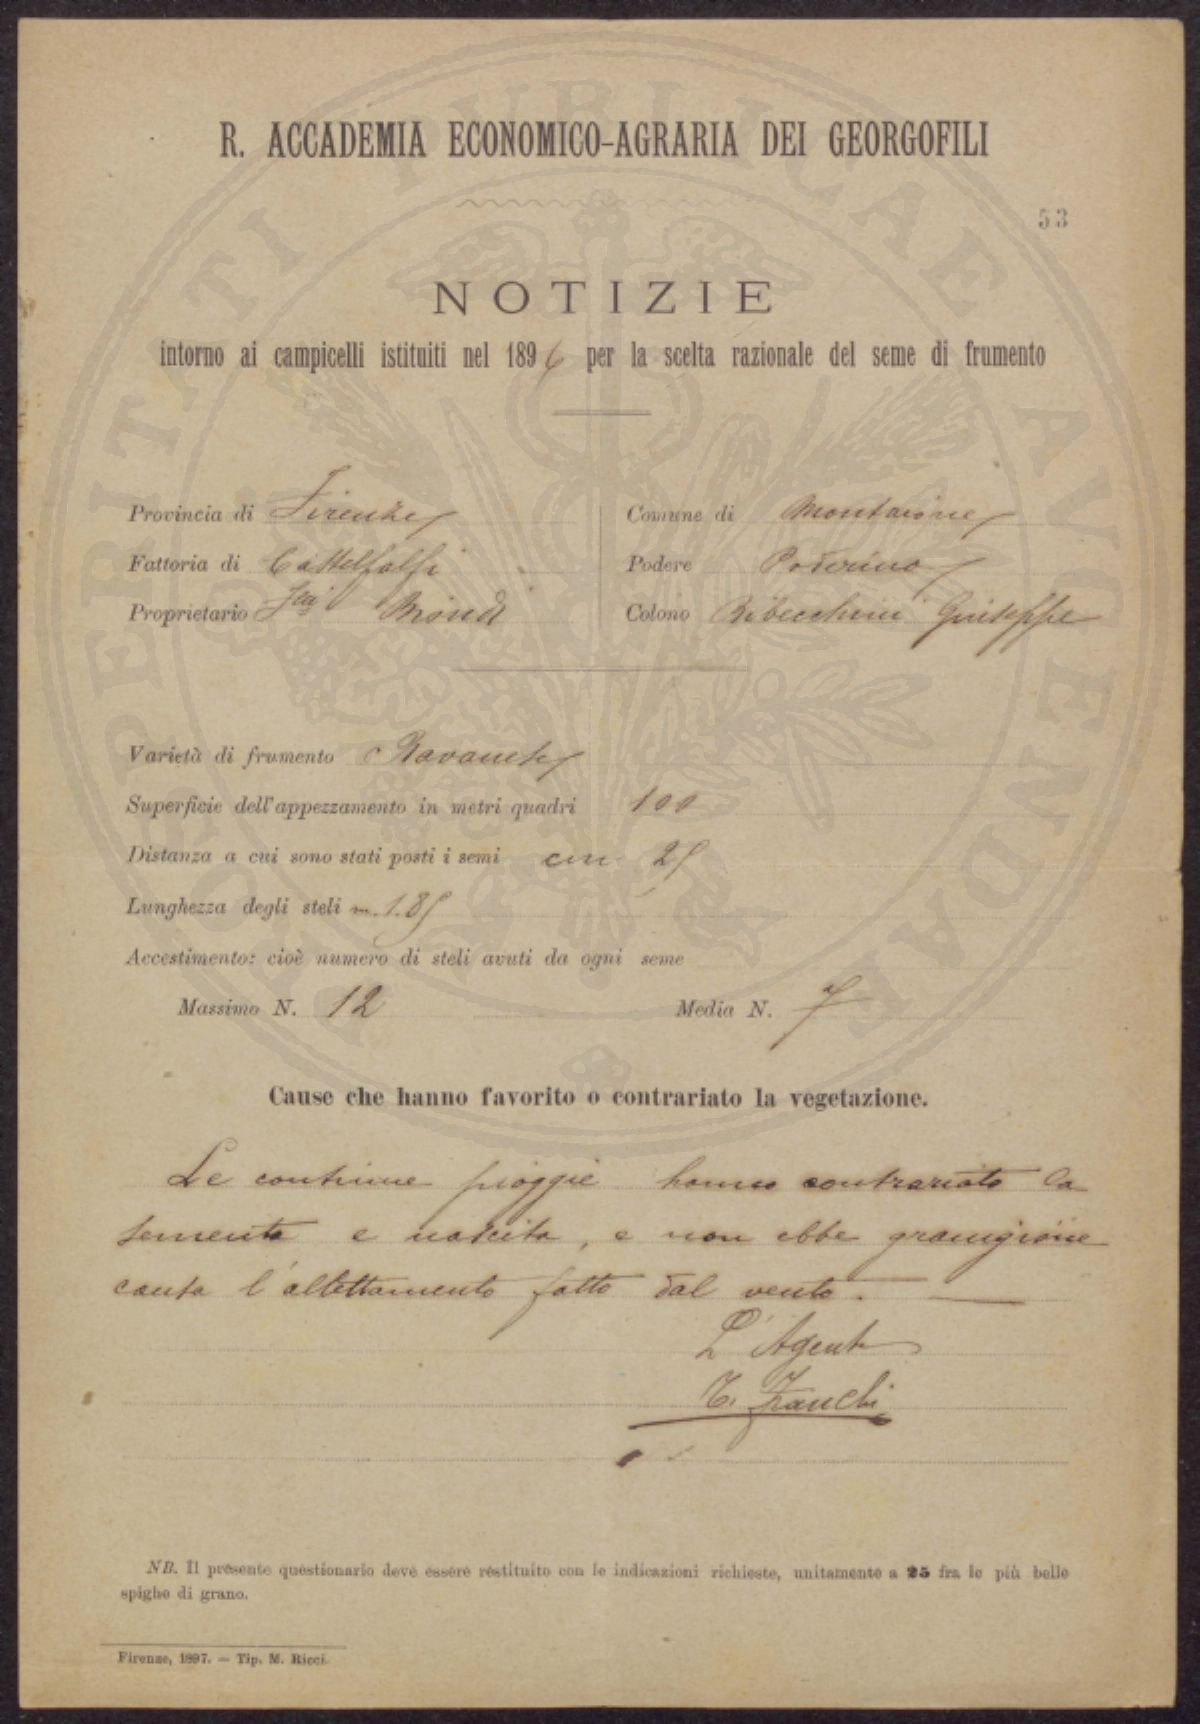 R. ACCADEMIA ECONOMICO-AGRARIA DEI GEORGOFILI
53
NOTIZIE
intorno ai campicelli istituiti nel 1896 per la scelta razionale del seme di frumento
Provincia di Firenze
Comune di Montaione
Fattoria di Castelfalfi
Podere Poderino
Proprietario Biondi
Colono Ribecchini Giuseppe
Varietà di frumento
Superficie dell'appezzamento in metri quadri 100
Distanza a cui sono stati posti i semi cm 25
Lunghezza degli steli m. 1.85
Accestimento: cioè numero di steli avuti da ogni seme
Massimo N. 12 Media N. 7
Cause che hanno favorito o contrariato la vegetazione.
Le continue pioggie hanno contrariato la
sementa e nascita, e non ebbe granigione
causa l'allettamento fatto dal vento.
L'Agente
Zanchi
NB. Il presente questionario deve essere restituito con le indicazioni richieste, unitamente a 25 fra le più belle
spighe di grano.
Firenze, 1897. — Tip. M. Ricci.
PROSPERITATI PUBLICAE AUGENDAE